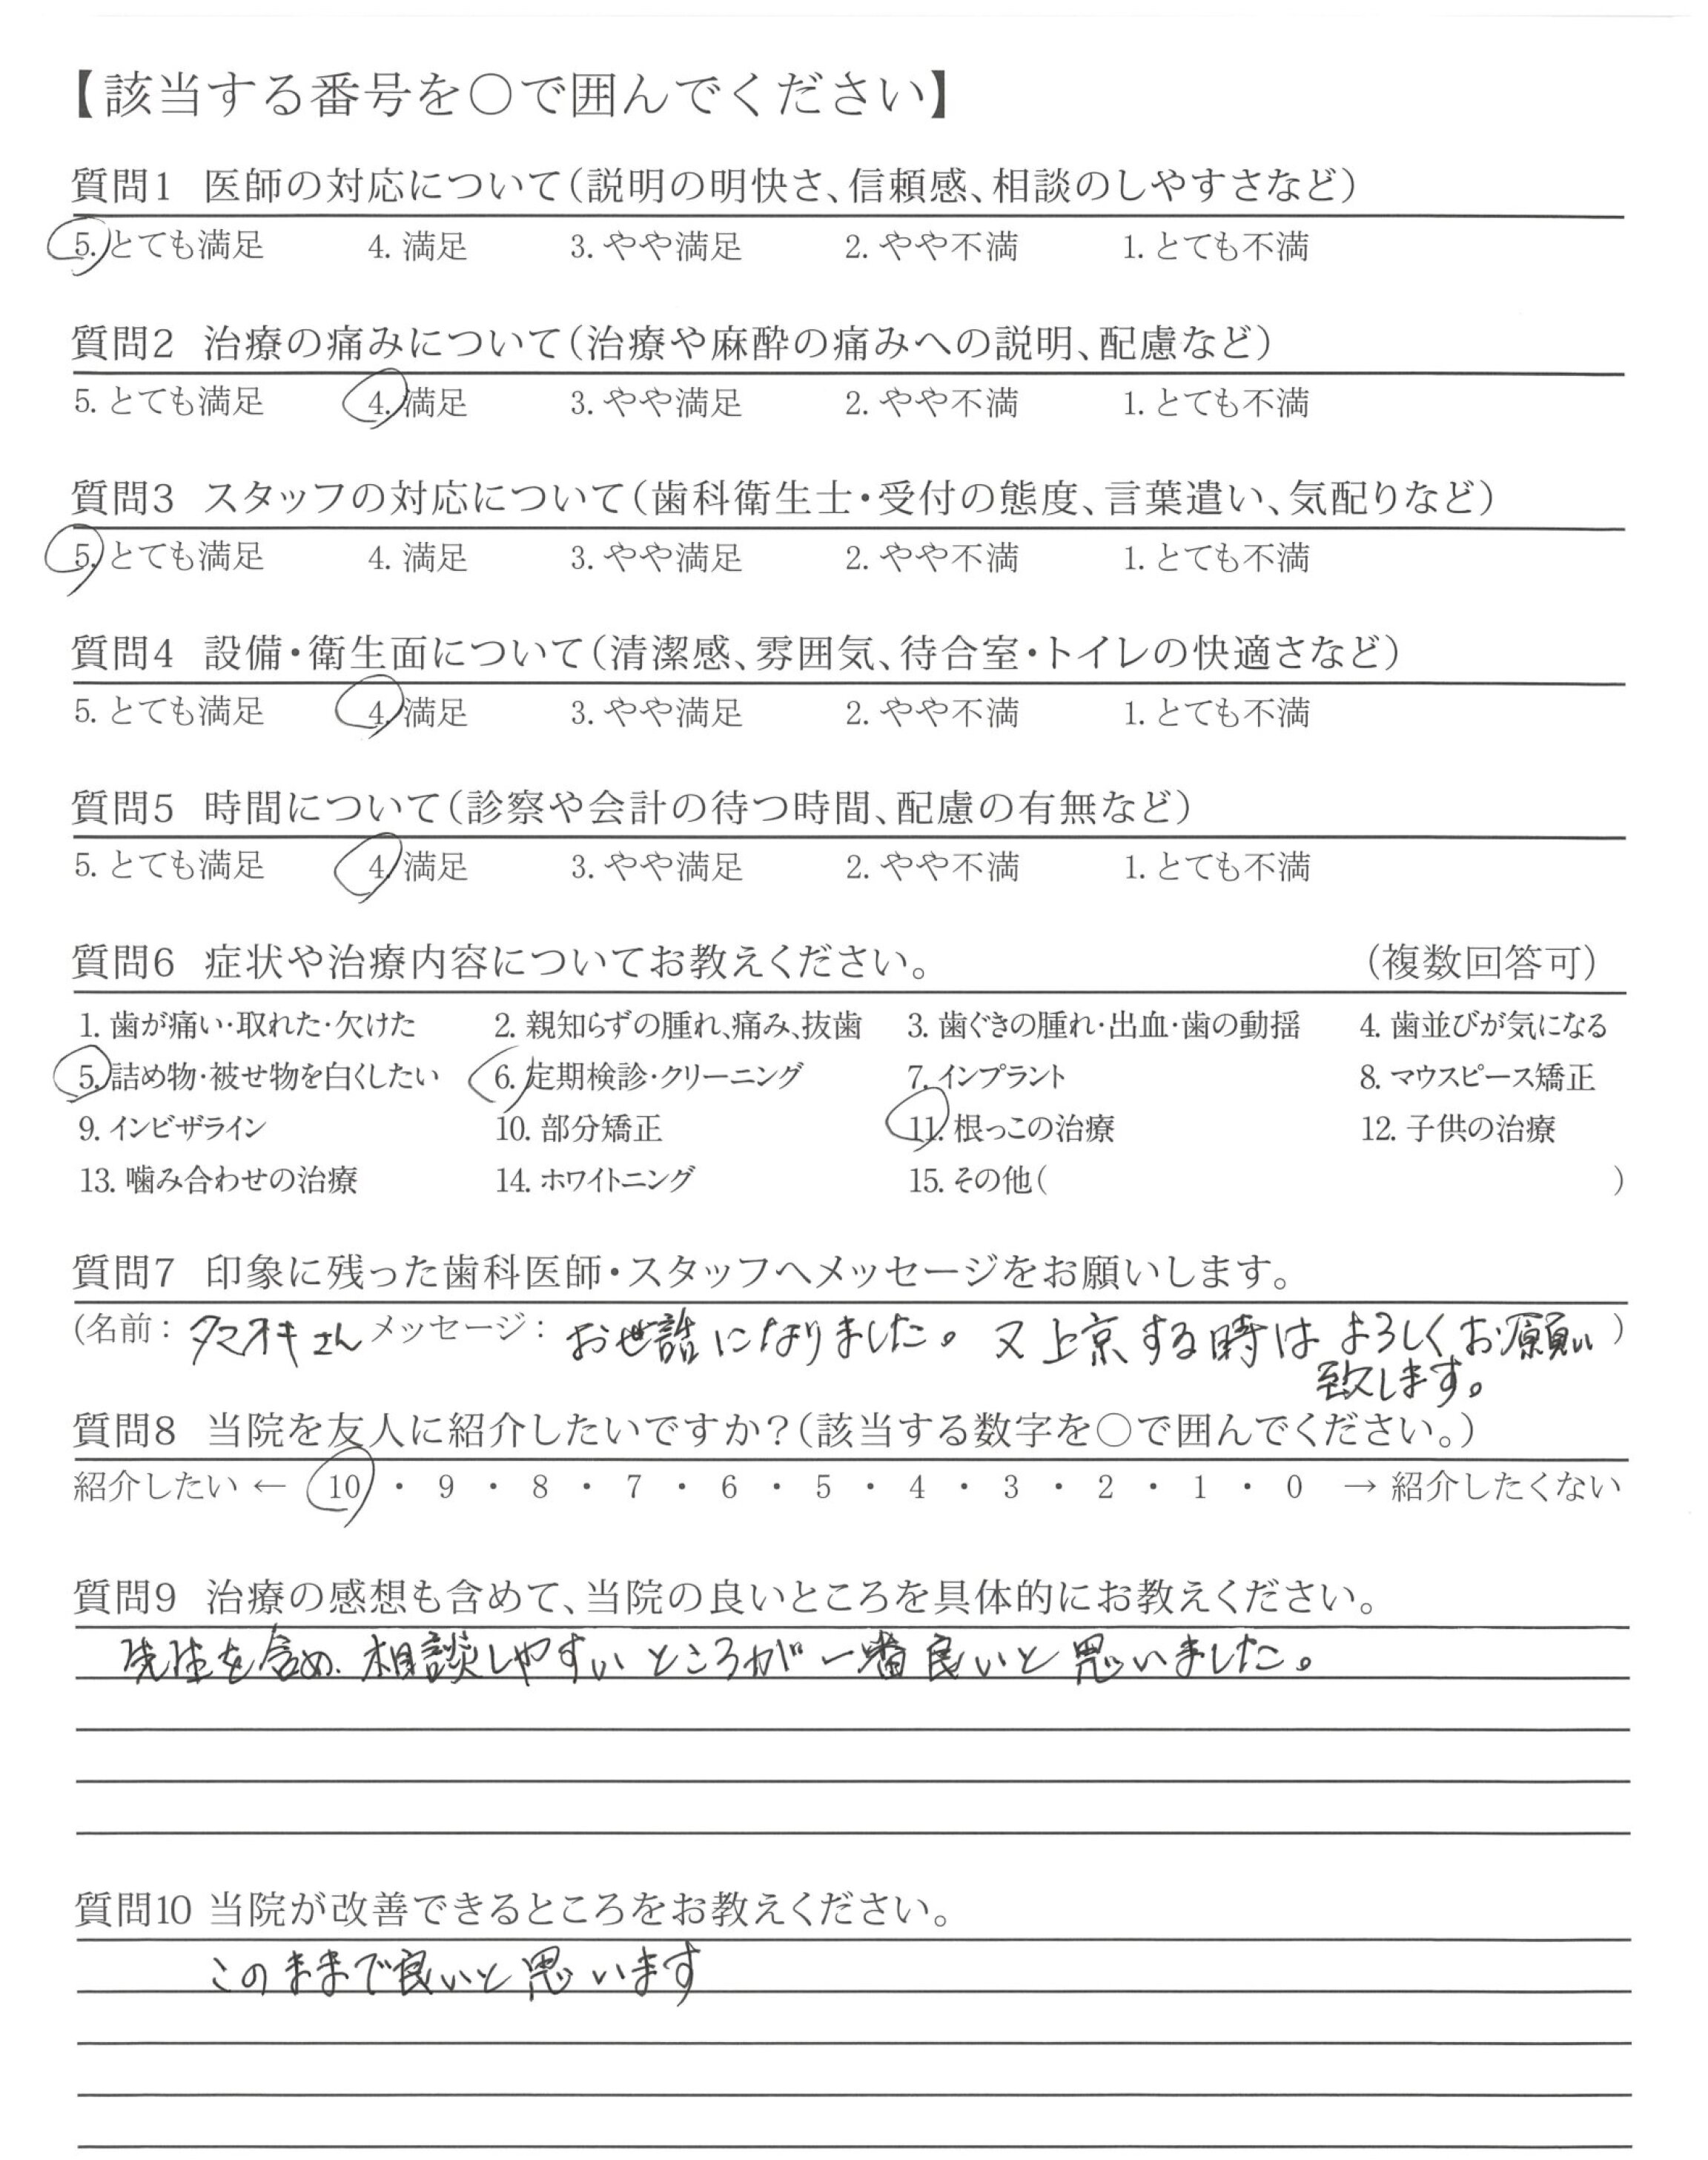 【該当する番号を○で囲んでください】
質問1 医師の対応について(説明の明快さ、信頼感、相談のしやすさなど)
5. とても満足 4. 満足 3. やや満足 2. やや不満 1. とても不満
質問2 治療の痛みについて(治療や麻酔の痛みへの説明、配慮など)
5. とても満足 4. 満足 3. やや満足 2. やや不満 1. とても不満
質問3 スタッフの対応について(歯科衛生士・受付の態度、言葉遣い、気配りなど)
5. とても満足 4. 満足 3. やや満足 2. やや不満 1. とても不満
質問4 設備・衛生面について(清潔感、雰囲気、待合室・トイレの快適さなど)
5. とても満足 4. 満足 3. やや満足 2. やや不満 1. とても不満
質問5 時間について(診察や会計の待つ時間、配慮の有無など)
5. とても満足 4. 満足 3. やや満足 2. やや不満 1. とても不満
質問6 症状や治療内容についてお教えください。 (複数回答可)
1. 歯が痛い・取れた・欠けた 2. 親知らずの腫れ、痛み、抜歯 3. 歯ぐきの腫れ・出血・歯の動揺 4. 歯並びが気になる
5. 詰め物・被せ物を白くしたい 6. 定期検診・クリーニング 7. インプラント 8. マウスピース矯正
9. インビザライン 10. 部分矯正 11. 根っこの治療 12. 子供の治療
13. 噛み合わせの治療 14. ホワイトニング 15. その他( )
質問7 印象に残った歯科医師・スタッフへメッセージをお願いします。
(名前: タマオキさん メッセージ: お世話になりました。 又上京する時は よろしくお願い )
致します。
質問8 当院を友人に紹介したいですか?(該当する数字を○で囲んでください。)
紹介したい ← 10 ・ 9 ・ 8 ・ 7 ・ 6 ・ 5 ・ 4 ・ 3 ・ 2 ・ 1 ・ 0 → 紹介したくない
質問9 治療の感想も含めて、当院の良いところを具体的にお教えください。
先生を含め、相談しやすいところが一番良いと思いました。
質問10 当院が改善できるところをお教えください。
このままで良いと思います